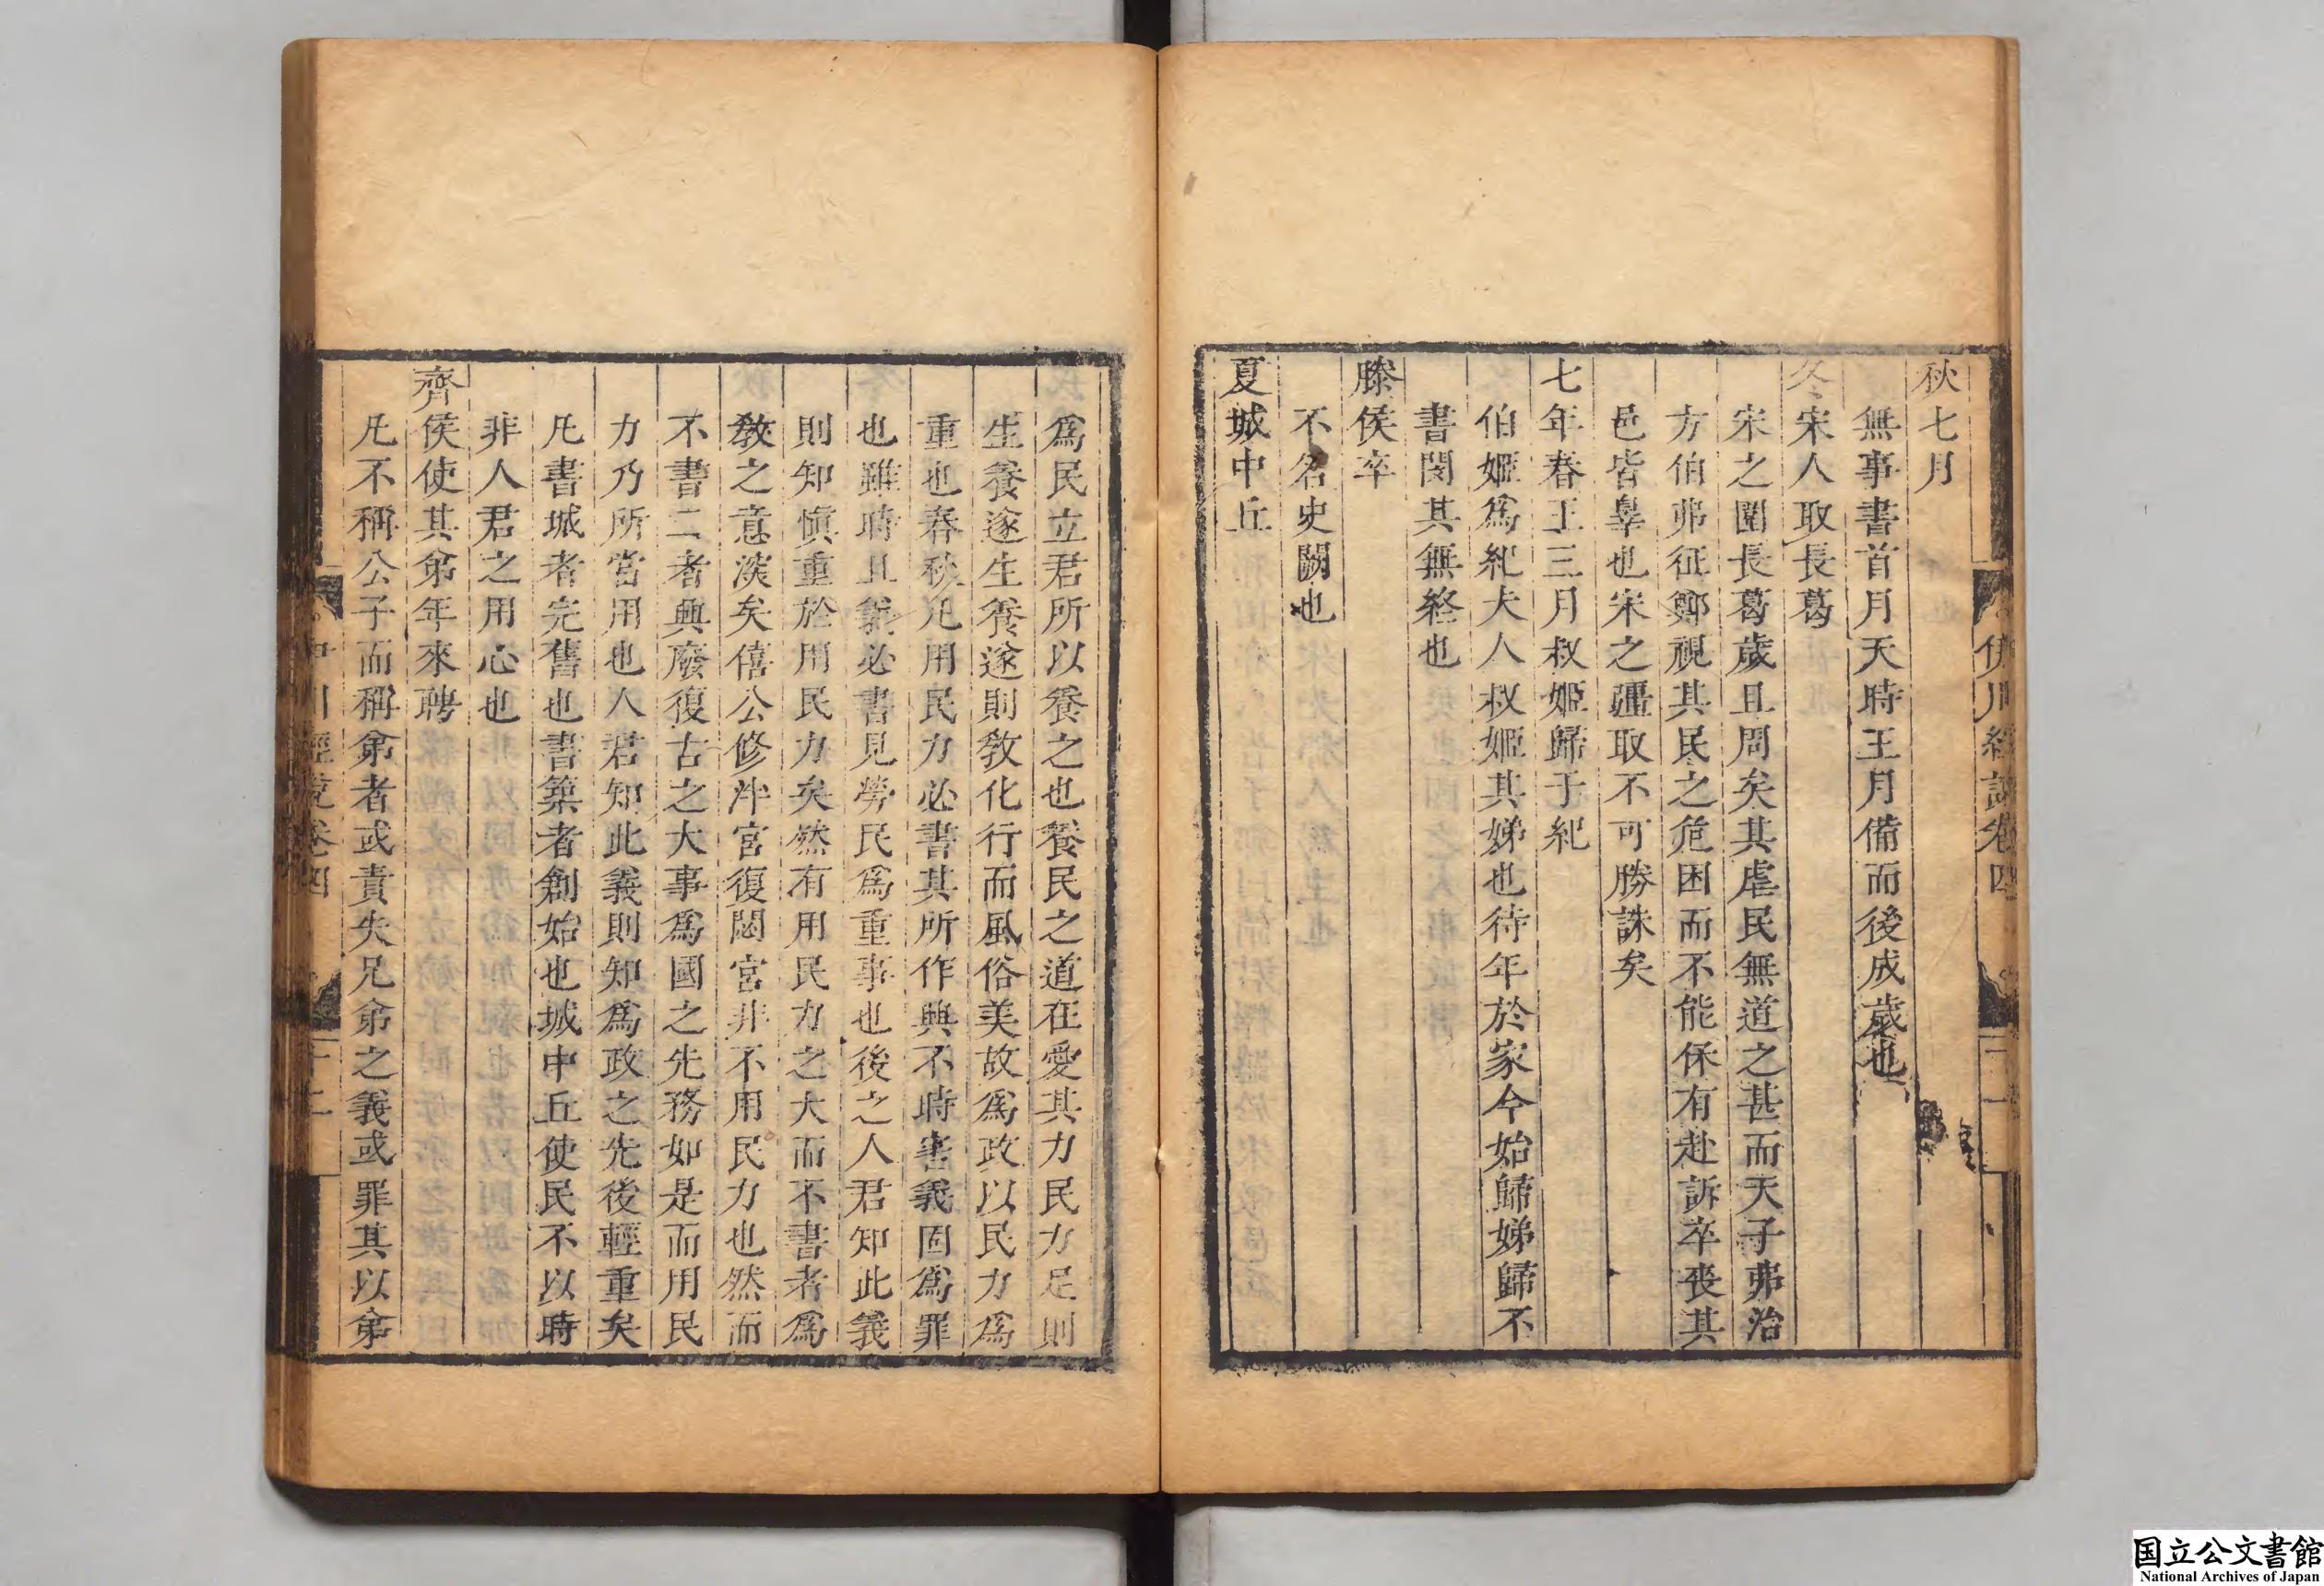 伊川經說卷四
秋七月
無事書首月天時王月備而後成歲也
冬宋人取長葛
宋之圍長葛歲且周矣其虐民無道之甚而天子弗治
方伯弗征鄭視其民之危困而不能保有赴訴卒喪其
邑皆辠也宋之彊取不可勝誅矣
七年春王三月叔姬歸于紀
伯姬爲紀夫人叔姬其娣也待年於家今始歸娣歸不
書閔其無終也
滕侯卒
不名史闕也
夏城中丘
爲民立君所以養之也養民之道在愛其力民力足則
生養遂生養遂則敎化行而風俗美故爲政以民力爲
重也春秋凡用民力必書其所作興不時害義固爲罪
也雖時且義必書見勞民爲重事也後之人君知此義
則知愼重於用民力矣然有用民力之大而不書者爲
敎之意深矣僖公修泮宮復閟宮非不用民力也然而
不書二者興廢復古之大事爲國之先務如是而用民
力乃所當用也人君知此義則知爲政之先後輕重矣
凡書城者完舊也書築者創始也城中丘使民不以時
非人君之用心也
齊侯使其弟年來聘
凡不稱公子而稱弟者或責失兄弟之義或罪其以弟
川經說卷四
十二
国立公文書館
National Archives of Japan